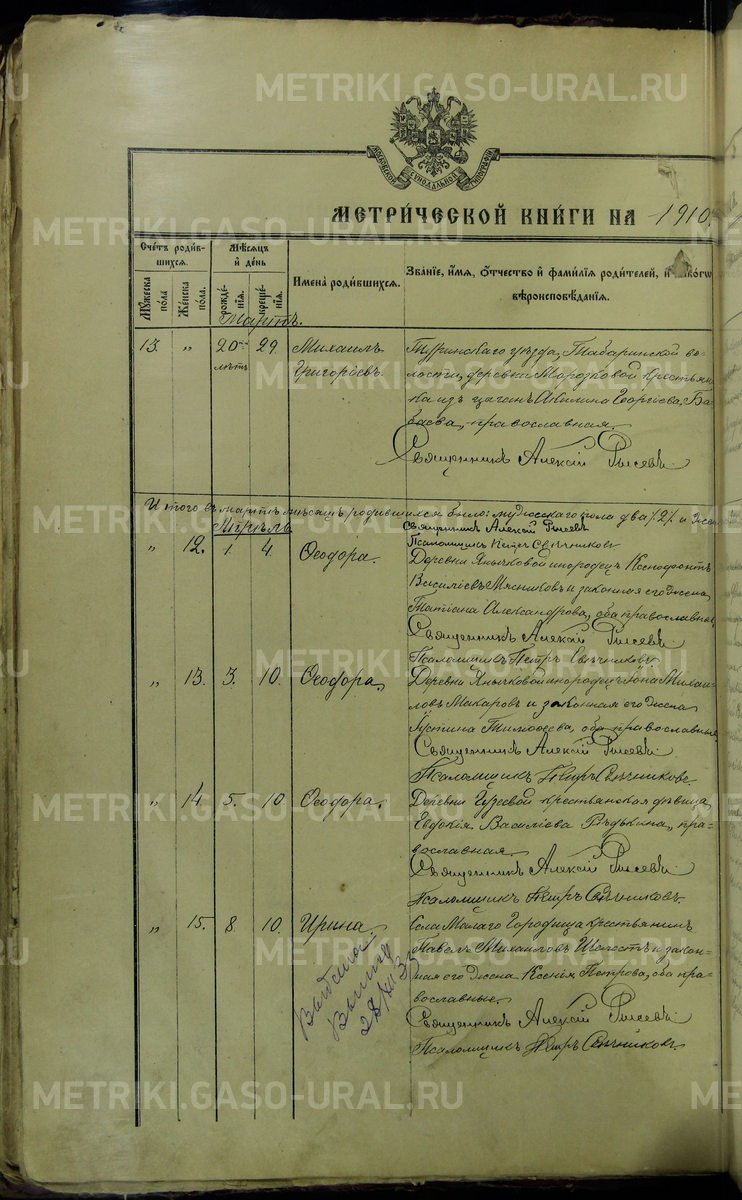 METRIKI.GASO-URAL.RU
МОСКОВСКОЙ СѴНОДАЛЬНОЙ ТИПОГРАФІИ
МЕТРИ́ЧЕСКОЙ КНИ́ГИ НА 1910
Сче́тъ роди́вшихся.
Мꙋ́жеска по́ла.
Же́нска по́ла.
Мѣ́сяцъ и҆ де́нь
рожде́нїѧ.
креще́нїѧ.
И҆мена̀ роди́вшихся.
Зва́нїе, и҆́мѧ, ѻ҆́тчество и҆ фами́лїѧ роди́телей, и҆
вѣроисповѣ́данїѧ.
Мартъ.
13. " 20 лѣтъ 29 Михаилъ Григорьевъ
Туринскаго уѣзда, Табаринской во-
лости, деревни Морозковой крестьян-
ка изъ цыганъ Акилина Георгіева
православная.
Священникъ Алексій
Итого въ мартѣ мѣсяцѣ родившихся было: мужескаго пола два /2/ и
Апрѣль
Священникъ Алексій
Псаломщикъ Петръ Свѣчниковъ
" 12. 1 4 Ѳеодора.
Деревни Янычковой инородецъ Ксенофонтъ
Василіевъ Мясниковъ и законная его жена
Татіана Александрова, оба православные
Священникъ Алексій
Псаломщикъ Петръ Свѣчниковъ
" 13. 3. 10. Ѳеодора.
Деревни Янычковой инородецъ Іона Михаи-
ловъ Макаровъ и законная его жена
Іустина Тимоѳеева, оба православные
Священникъ Алексій
Псаломщикъ Петръ Свѣчниковъ.
" 14. 5. 10 Ѳеодора.
Деревни крестьянская дѣвица
Евдокія Василіева Рѣдькина, пра-
вославная.
Священникъ Алексій
Псаломщикъ Петръ Свѣчниковъ.
" 15. 8. 10. Ирина.
Села Малаго Городища крестьянинъ
Павелъ Михаиловъ и закон-
ная его жена Ксенія Петрова, оба пра-
вославные.
Священникъ Алексій
Псаломщикъ Петръ Свѣчниковъ.
Выдана
28/XII 35